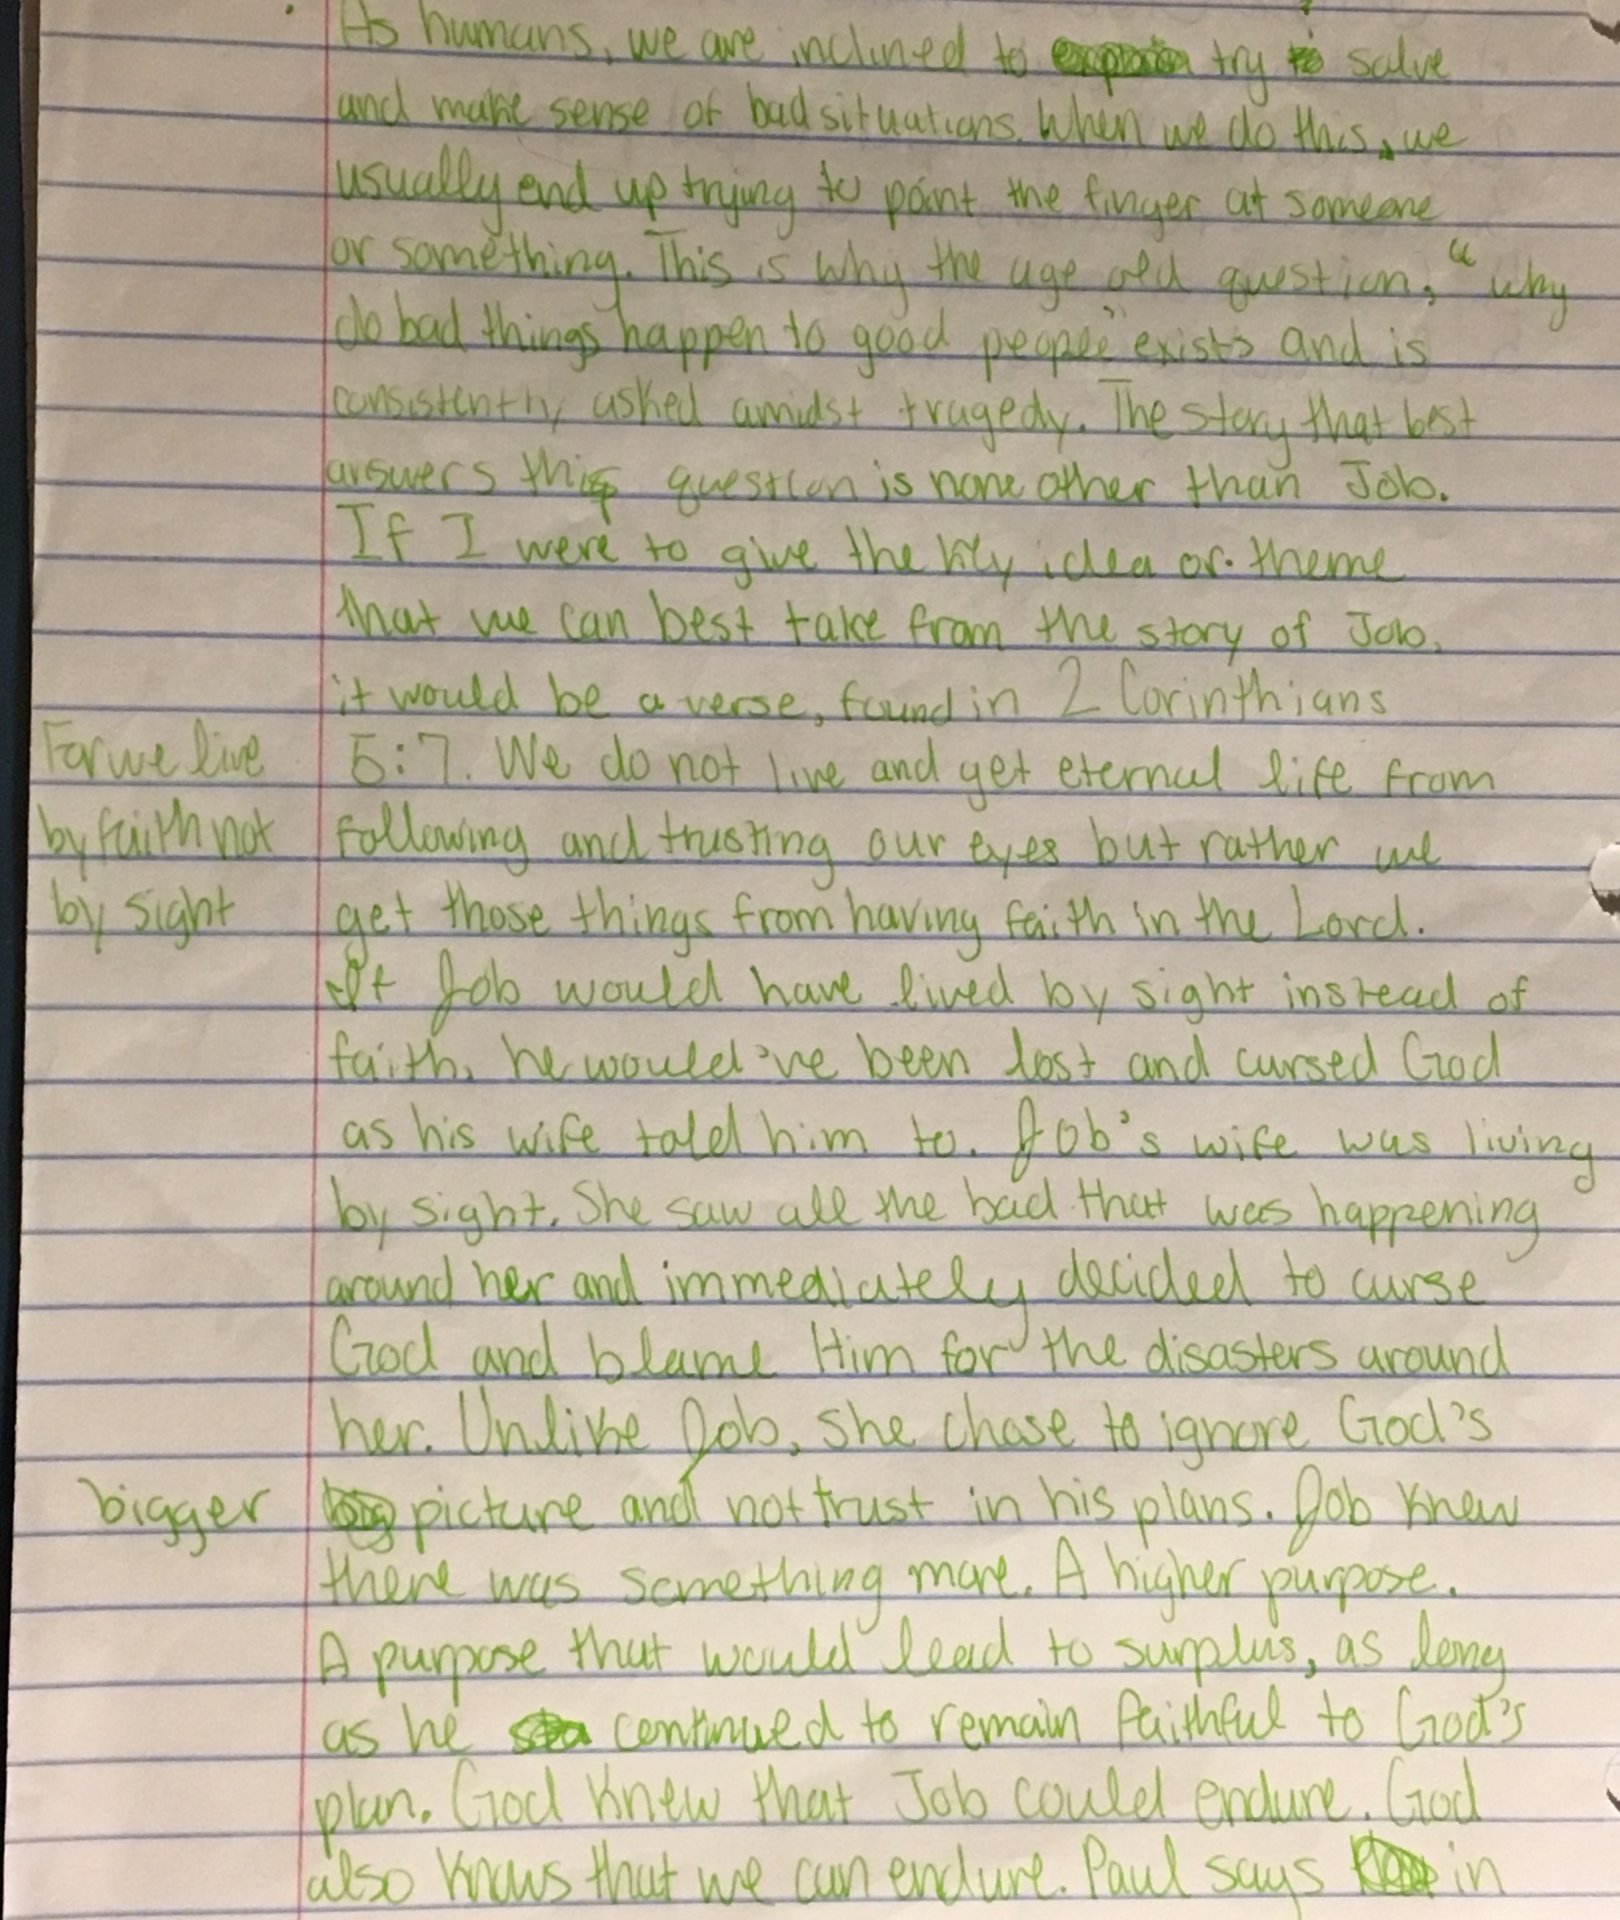 As humans, we are inclined to try to solve
and make sense of bad situations. When we do this, we
usually end up trying to point the finger at someone
or something. This is why the age old question, "why
do bad things happen to good people" exists and is
consistently asked amidst tragedy. The story that best
answers this question is none other than Job.
If I were to give the key idea or theme
that we can best take from the story of Job,
it would be a verse, found in 2 Corinthians
For we live
by faith not
by sight
5:7. We do not live and get eternal life from
following and trusting our eyes but rather we
get those things from having faith in the Lord.
If Job would have lived by sight instead of
faith, he would've been lost and cursed God
as his wife told him to. Job's wife was living
by sight. She saw all the bad that was happening
around her and immediately decided to curse
God and blame Him for the disasters around
her. Unlike Job, she chose to ignore God's
bigger picture and not trust in his plans. Job knew
there was something more. A higher purpose.
A purpose that would lead to surplus, as long
as he continued to remain faithful to God's
plan. God knew that Job could endure. God
also knows that we can endure. Paul says in